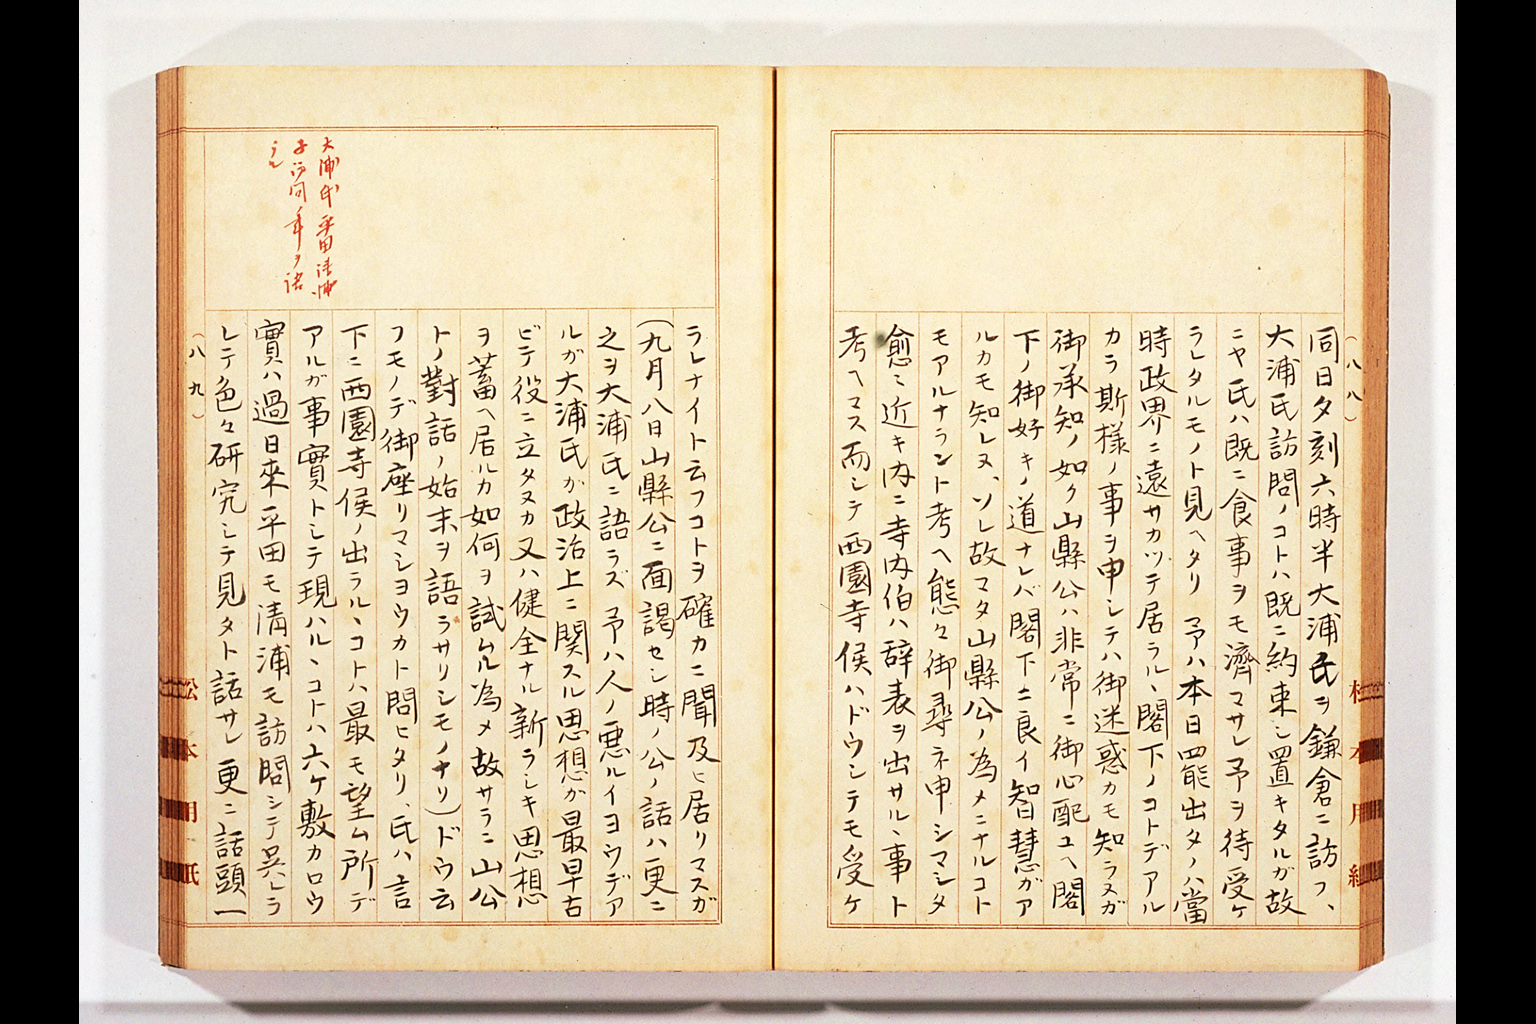 (八八)
同日夕刻六時半大浦氏ヲ鎌倉ニ訪フ、
大浦氏訪問ノコトハ既ニ約束シ置キタルガ故
ニヤ氏ハ既ニ食事ヲモ濟マサレ予ヲ待受ケ
ラレタルモノト見ヘタリ 予ハ本日罷出タノハ當
時政界ニ遠サカツテ居ラル、閣下ノコトデアル
カラ斯様ノ事ヲ申シテハ御迷惑カモ知ラヌガ
御承知ノ如ク山縣公ハ非常ニ御心配ユヘ閣
下ノ御好キノ道ナレバ閣下ニ良イ智慧ガア
ルカモ知レヌ、ソレ故マタ山縣公ノ為メニナルコト
モアルナラント考ヘ態々御尋ネ申シマシタ
愈々近キ内ニ寺内伯ハ辞表ヲ出サル、事ト
考ヘマス而シテ西園寺侯ハドウシテモ受ケ
松本用紙
大浦氏平田清浦
子訪問ノ事ヲ諾
ラル
ラレナイト云フコトヲ確カニ聞及ヒ居リマスガ
(九月八日山縣公ニ面謁セシ時ノ公ノ話ハ更ニ
之ヲ大浦氏ニ語ラズ 予ハ人ノ悪ルイヨウデア
ルガ大浦氏ガ政治上ニ関スル思想ガ最早古
ビテ役ニ立タヌカ又ハ健全ナル新ラシキ思想
ヲ蓄ヘ居ルカ如何ヲ試ムル為メ故サラニ山公
トノ對話ノ始末ヲ語ラサリシモノナリ)ドウ云
フモノデ御座リマシヨウカト問ヒタリ、氏ハ言
下ニ西園寺侯ノ出ラル、コトハ最モ望ム所デ
アルガ事實トシテ現ハル、コトハ六ケ敷カロウ
實ハ過日來平田モ清浦モ訪問シテ呉レラ
レテ色々研究シテ見タト話サレ 更ニ話頭一
(八九)
松本用紙